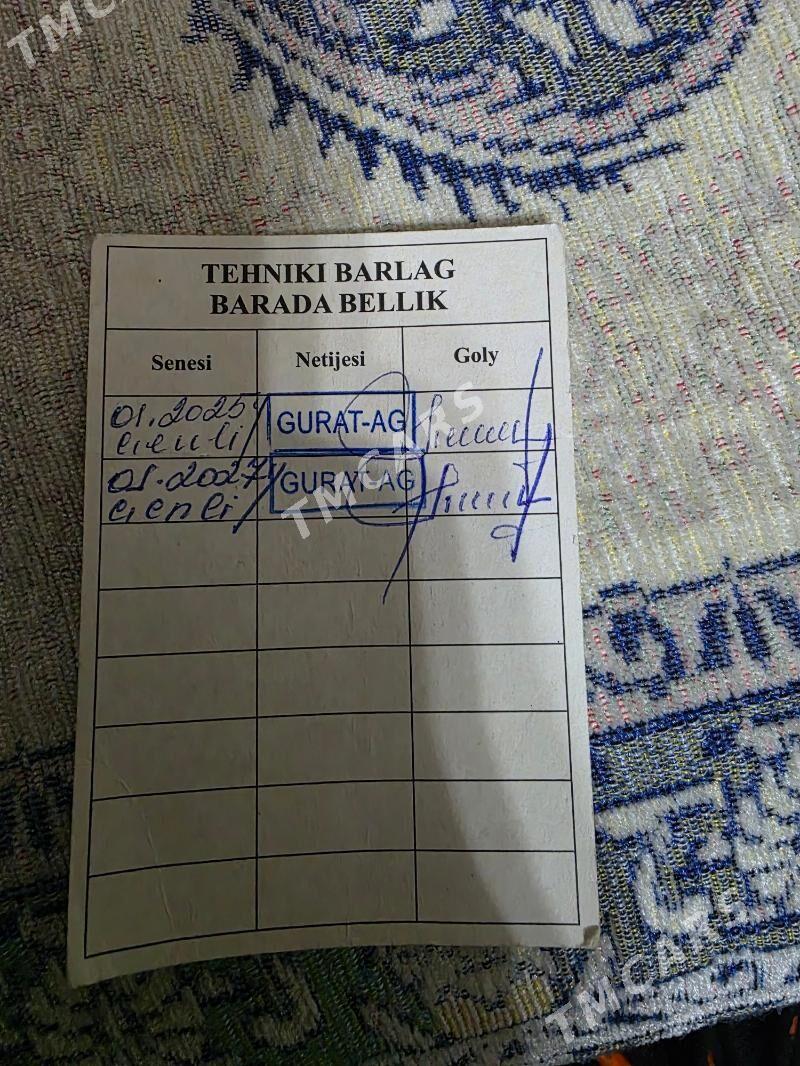 TMCARS
TEHNIKI BARLAG
BARADA BELLIK
Senesi Netijesi Goly
01.2025 GURAT-AG
çenli
01.2027 GURAT-AG
çenli
TMCARS
TMCARS